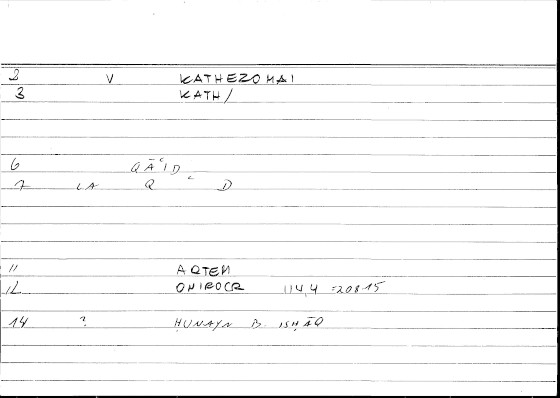 2 V KATHEZOMAI
3 KATH/
6 QĀʿID
7 LA Q ʿ D
11 ARTEM
12 ONIROCR 114,4 =208.15
14 ? ḤUNAYN B. ISḤĀQ